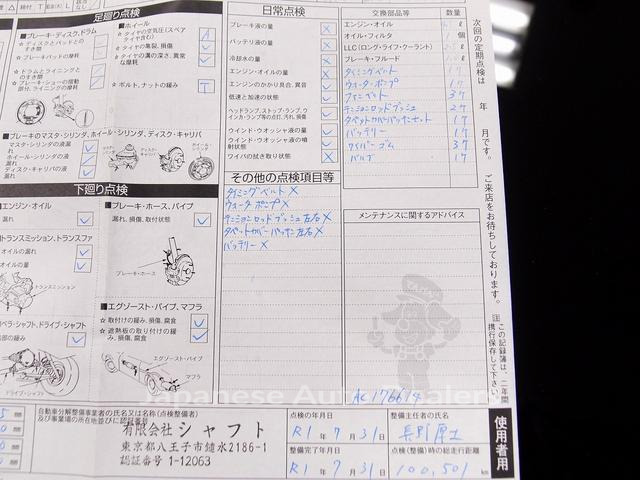 足廻り点検
■ブレーキ・ディスク、ドラム
☆ディスクとパッドとのすき間
☆ブレーキパッドの摩耗
☆ドラムとライニングとのすき間
☆ブレーキシューの摺動部分、ライニングの摩耗
■ホイール
☆タイヤの空気圧(スペアタイヤ含む)
☆タイヤの亀裂、損傷
☆タイヤの溝の深さ、異常な摩耗
☆ボルト、ナットの緩み
T
■ブレーキのマスタ・シリンダ、ホイール・シリンダ、ディスク・キャリパ
マスタ・シリンダの液漏れ
ホイール・シリンダの液漏れ
ディスク・キャリパの液漏れ
下廻り点検
■エンジン・オイル
漏れ
オイルの漏れ
オイルの量
■ブレーキ・ホース、パイプ
漏れ、損傷、取付状態
ブレーキ・ホース
■エグゾースト・パイプ、マフラ
☆取付けの緩み、損傷、腐食
☆遮熱板の取り付けの緩み、損傷、腐食
エグゾースト・パイプ
マフラ
ドライブ・シャフト
日常点検
ブレーキ液の量
バッテリ液の量
冷却水の量
エンジン・オイルの量
エンジンのかかり具合、異音
低速と加速の状態
ヘッドランプ、ストップ・ランプ、ウインカ・ランプ等の点灯、汚れ、損傷
ウインド・ウオッシャ液の量
ウインド・ウオッシャ液の噴射状態
ワイパの拭き取り状態
その他の点検項目等
タイミングベルト ×
ウォータポンプ ×
テンションロッドブッシュ左右 ×
タペットカバーパッキン左右 ×
バッテリー ×
交換部品等
数量
エンジン・オイル
ℓ
オイル・フィルタ
個
LLC(ロング・ライフ・クーラント)
ℓ
ブレーキ・フルード
ℓ
タイミングベルト
ウォータポンプ
ファンベルト
テンションロッドブッシュ
タペットカバーパッキンセット
バッテリー
ワイパーゴム
バルブ
メンテナンスに関するアドバイス
AC 176614
次回の定期点検は 年 月です。 ご来店をお待ちしております。
注 この記録簿は、二年間携行保存して下さい。
使用者用
自動車分解整備事業者の氏名又は名称(点検整備者)及び事業場の所在地並びに認証番号
有限会社シャフト
東京都八王子市鑓水2186-1
認証番号 1-12063
点検の年月日
R1 年 7 月 31 日
整備完了年月日
R1 年 7 月 31 日
整備主任者の氏名
点検(整備)時の総走行距離
100,501 km
Japanese Auto Dealers